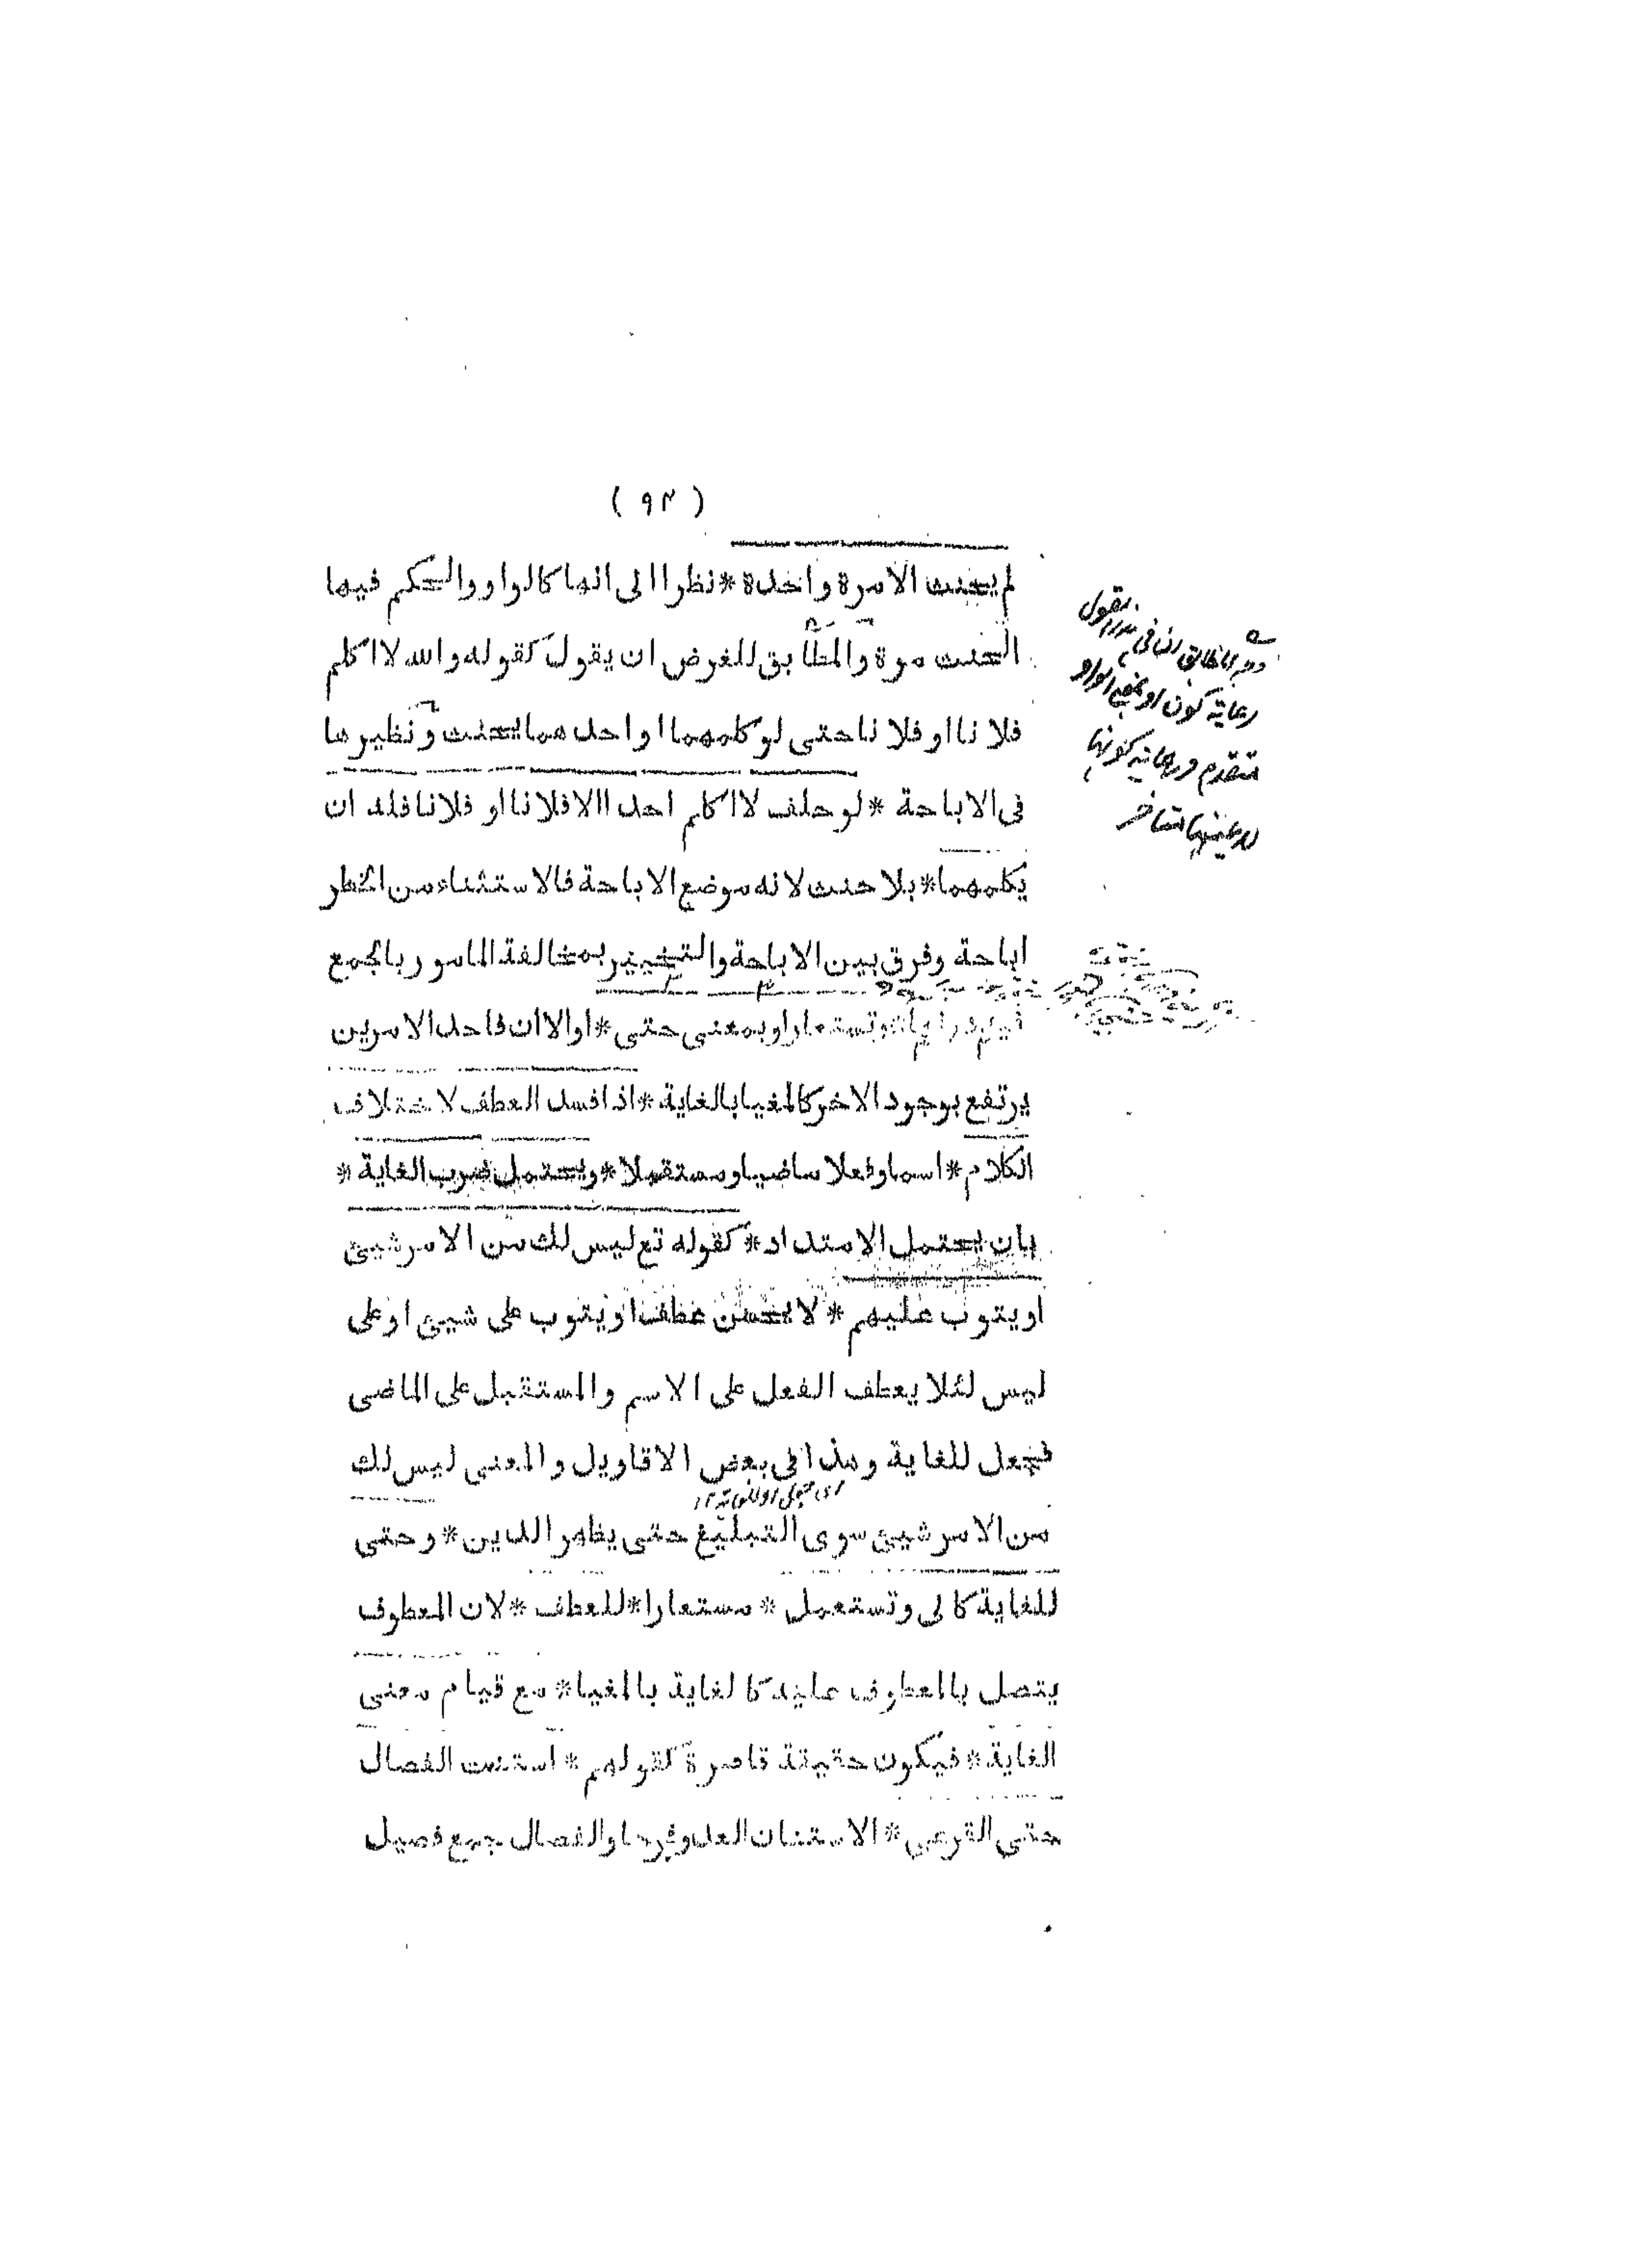 ( ٩٣ )
لم يحنث الا مرة واحدة * نظرا الى انها كالواو والحكم فيها
الحنث مرة والمطابق للغرض ان يقول كقوله والله لا اكلم
فلانا او فلانا حتى لو كلمهما او احدهما يحنث ونظيرها
فى الاباحة * لو حلف لا اكلم احدا الا فلانا او فلانا فله ان
يكلمهما * بلا حنث لانه موضع الاباحة فالاستثناء من الحظر
اباحة وفرق بين الاباحة والتخيير بمخالفة المامور بالجمع
وتستعار او بمعنى حتى * او الا ان فاحد الامرين
يرتفع بوجود الاخر كالمغيا بالغاية * اذا فسد العطف لاختلاف
الكلام * اسما وفعلا ماضيا ومستقبلا * ويحتمل ضرب الغاية *
بان يحتمل الامتداد * كقوله تع ليس لك من الامر شيئ
او يتوب عليهم * لا يحسن عطف او يتوب على شيئ او على
ليس لئلا يعطف الفعل على الاسم والمستقبل على الماضى
فجعل للغاية وهذا فى بعض الاقاويل والمعنى ليس لك
من الامر شيئ سوى التبليغ حتى يظهر الدين * وحتى
للغاية كالى وتستعمل * مستعارا * للعطف * لان المعطوف
يتصل بالمعطوف عليه كالغاية بالمغيا * مع قيام معنى
الغاية * فيكون حقيقة قاصرة كقولهم * استنت الفصال
حتى القرعى * الاستنان العدو فرحا والفصال جمع فصيل
رعاية كون او بمعنى الواو
متقدم ورعاية كونها